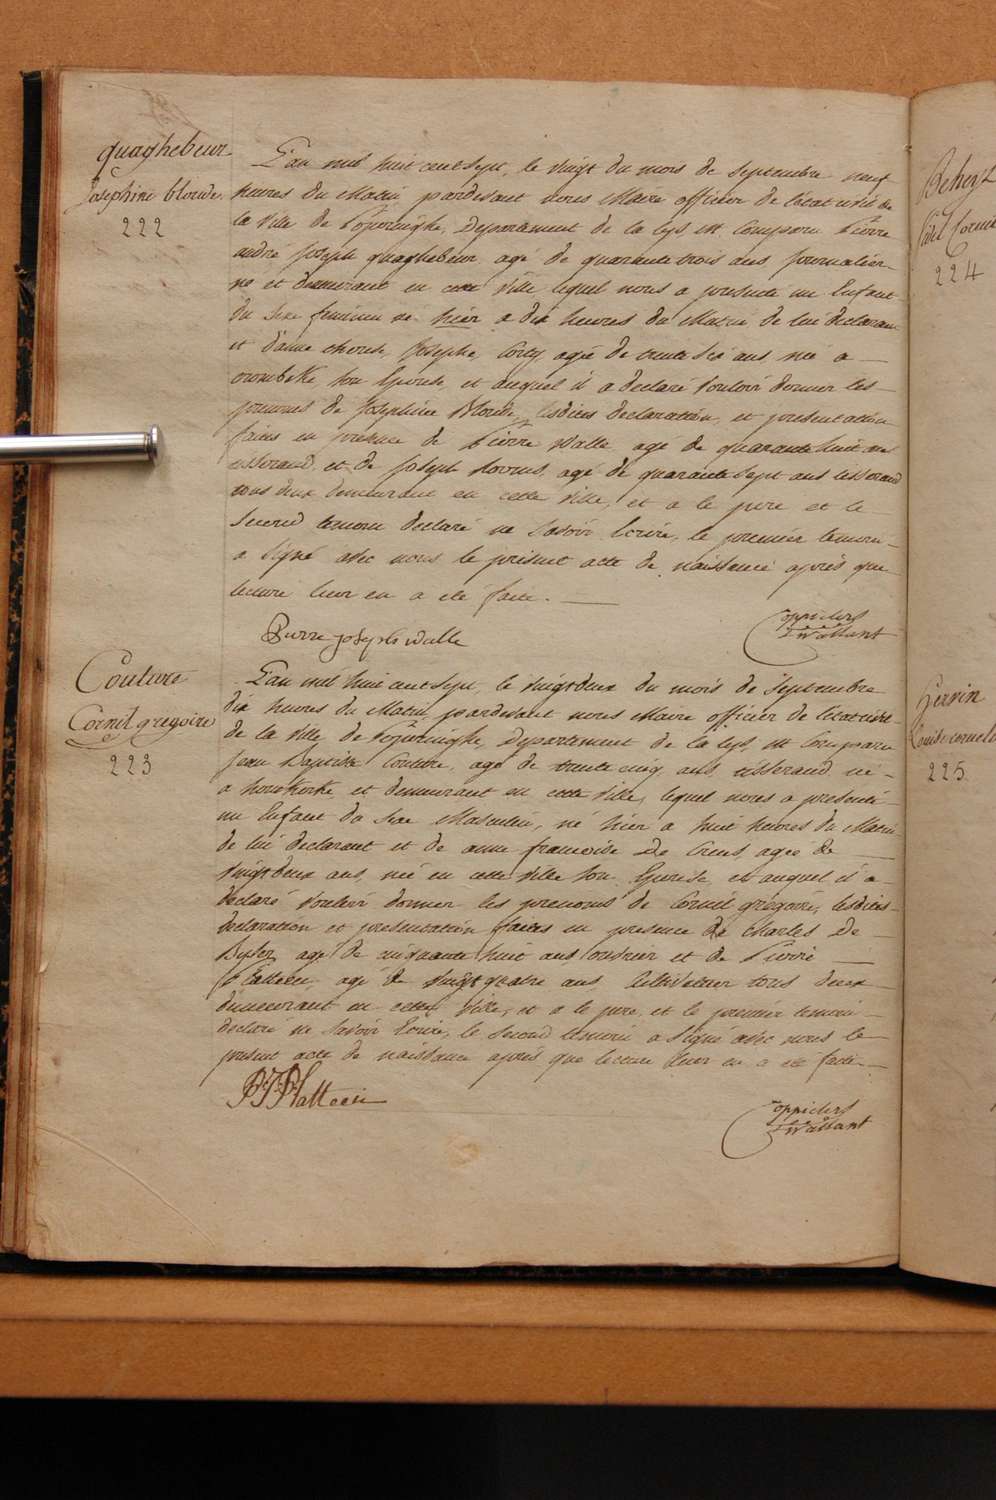 quaghebeur
Josephine blonde.
222
L'an mil huit cent sept, le vingt du mois de Septembre neuf
heures du Matin pardevant nous Maire officier de l'état civil de
la Ville de Poperinghe, Departement de la Lys, est comparu Pierre
andré Joseph quaghebeur agé de quarante trois ans journalier
né et demeurant en cette Ville lequel nous a presenté un Enfant
du Sexe feminin né hier a dix heures du Matin de lui declarant
et d'anne therese, Josephe, agée de trente six ans née a
son Epouse, et auquel il a declaré vouloir donner les
prenoms de Josephine Blonde, lesdites declaration, et presentation
faites en presence de Pierre Walle agé de quarante huit ans
tisserand, et de Joseph agé de quarante Sept ans tisserand
tous deux demeurant en cette Ville, et a le pere et le
Second temoin declaré ne savoir Ecrire, le premier temoin
a Signé avec nous le present acte de naissance après que
lecture leur en a été faite.
Pierre joseph walle
Coppieters
T'Wallant
Couture
Cornil gregoire
223
L'an mil huit cent sept, le vingt deux du mois de Septembre
dix heures du Matin, pardevant nous Maire officier de l'état civil
de la Ville de Poperinghe, Departement de la Lys, est comparu
Jean Baptiste Couture, agé de trente cinq ans, tisserand né
a et demeurant en cette Ville, lequel nous a presenté
un Enfant du Sexe Masculin, né hier a huit heures du Matin
de lui declarant et de anne francoise De agée de
vingt deux ans, née en cette Ville son Epouse et auquel il a
declaré vouloir donner les prenoms de Cornil grégoire, lesdites
declaration et presentation faites en presence de Charles De
agé de cinquante huit ans ouvrier et de Pierre
Platteeu agé de vingt quatre ans, Cultivateur tous deux
demeurant en cette Ville, et a le pere, et le premier temoin
declaré ne savoir Ecrire, le Second temoin a Signé avec nous le
present acte de naissance après que lecture leur en a été faite.
P:J:Platteeu
Coppieters
T'Wallant
224
gervin
225